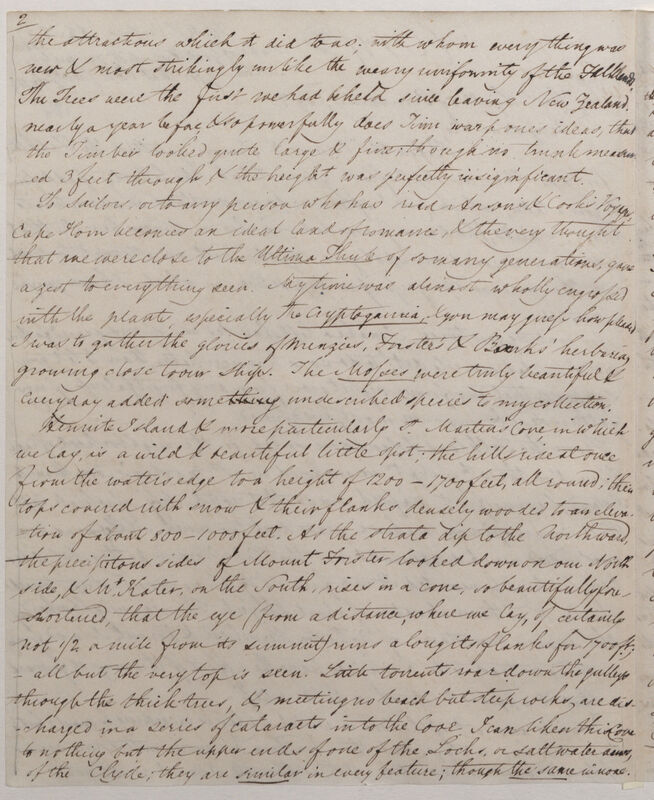 2
the attractions which it did to us: with whom everything was
new & most strikingly unlike the weary uniformity of the Falklands.
The Trees were the first we had beheld since leaving New Zealand,
nearly a year before, & so powerfully does Time warp ones ideas, that
the Timber looked quite large & fine, though no trunk measur-
-ed 3 feet through, & the height was perfectly insignificant.
To Sailors, or to any person who has read Anson's & Cook's Voyages,
Cape Horn becomes an ideal land of romance, & the very thought
that we were close to the Ultima Thule of so many generations, gave
a zest to everything seen. My time was almost wholly engrossed
with the plants, especially the Cryptogamia, & you may guess how pleased
I was to gather the glories of Menzies', Forster's & Banks' herbaria
growing close to our Ship. The Mosses were truly beautiful &
everyday added something undescribed species to my collection.
Hermite Island & more particularly St. Martins Cove in which
we lay, is a wild & beautiful little spot; the hills rise at once
from the water's edge to a height of 1200 – 1700 feet, all round; their
tops covered with snow & their flanks densely wooded to an eleva-
tion of about 800 – 1000 feet. As the strata dip to the Northward,
the precipitous sides of Mount Forster looked down on our North
side, & Mt. Kater, on the South, rises in a cone, so beautifully fore-
shortened, that the eye (from a distance, where we lay, of certainly
not 1/2 a mile from its summit) runs along its flanks for 1700 ft;
– all but the very top is seen. Little torrents roar down the gulleys
through the thick trees, & meeting no beach but steep rocks, are dis-
-charged in a series of cataracts into the Cove. I can liken this Cove
to nothing but the upper ends of one of the Lochs, or salt water arms,
of the Clyde; they are similar in every feature; though the same in none.